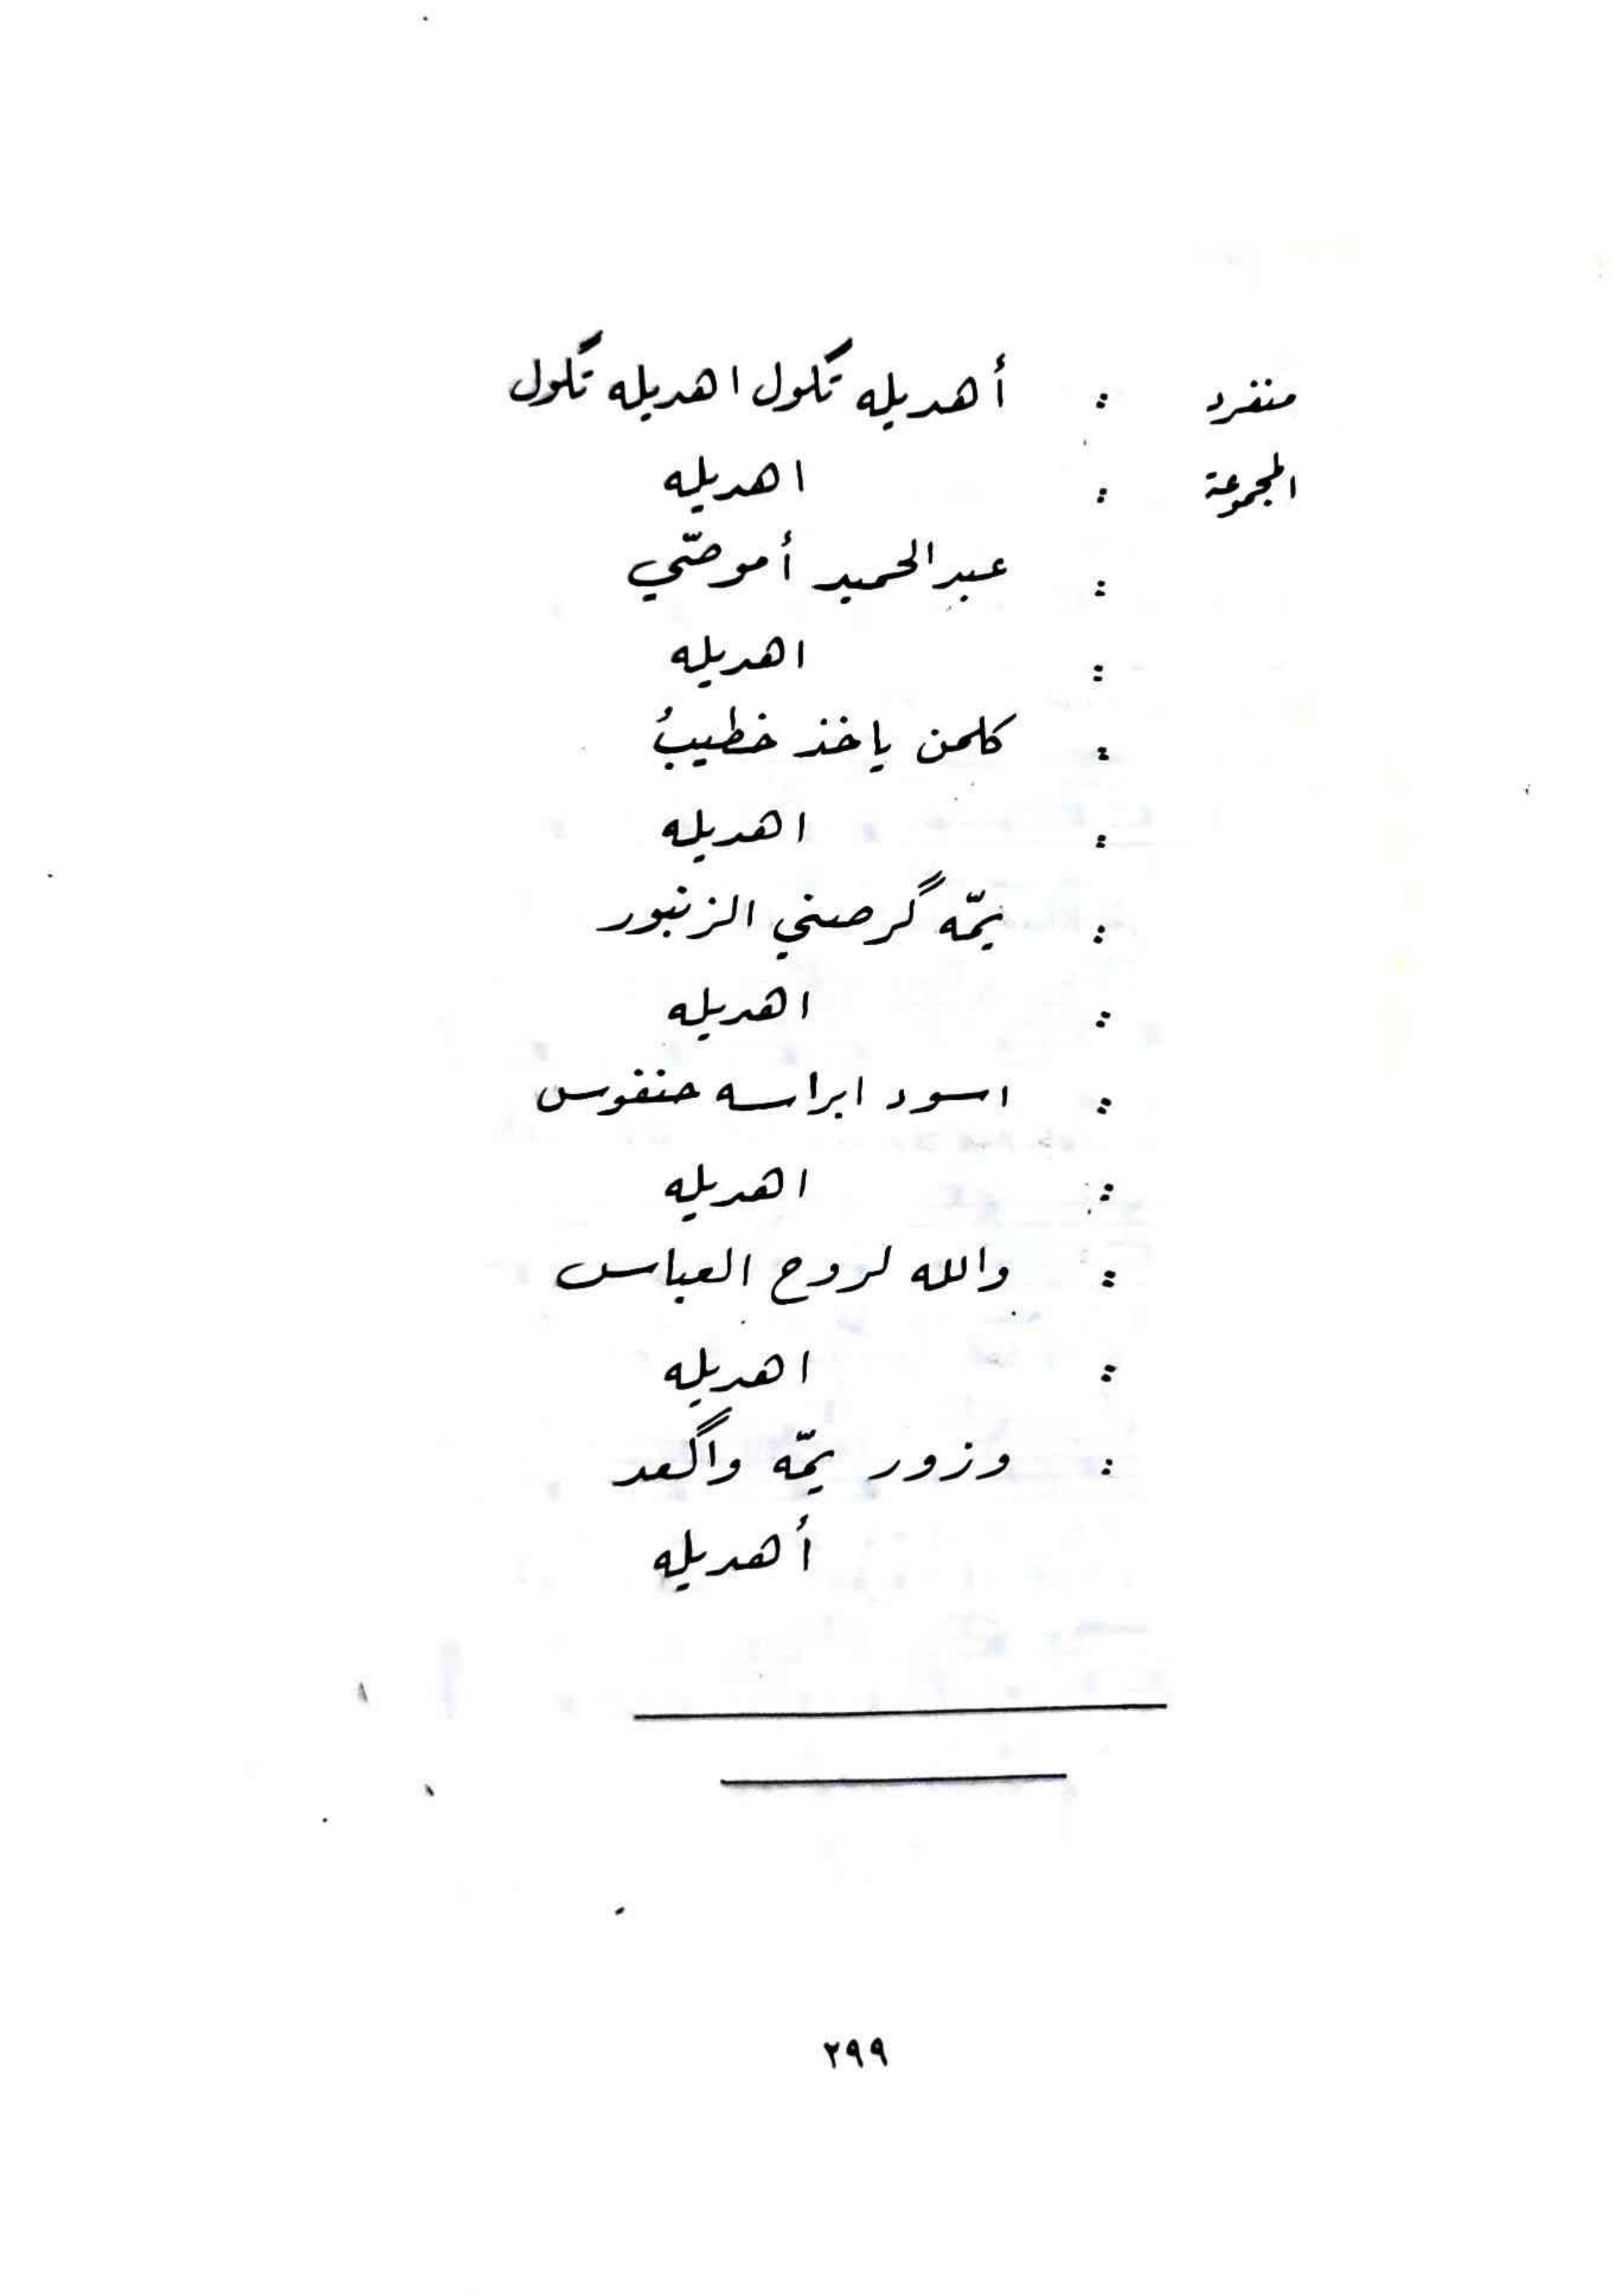 منفرد : أهديله تگول اهديله تگول
المجموعة : اهديله
: عبدالحميد أموصّي
: اهديله
: كلمن ياخذ خطيبُ
: اهديله
: يمّه گرصني الزنبور
: اهديله
: اسود ابراسه حنفوس
: اهديله
: والله لروح العباس
: اهديله
: وزور يمّه واگعد
أهديله
٢٩٩